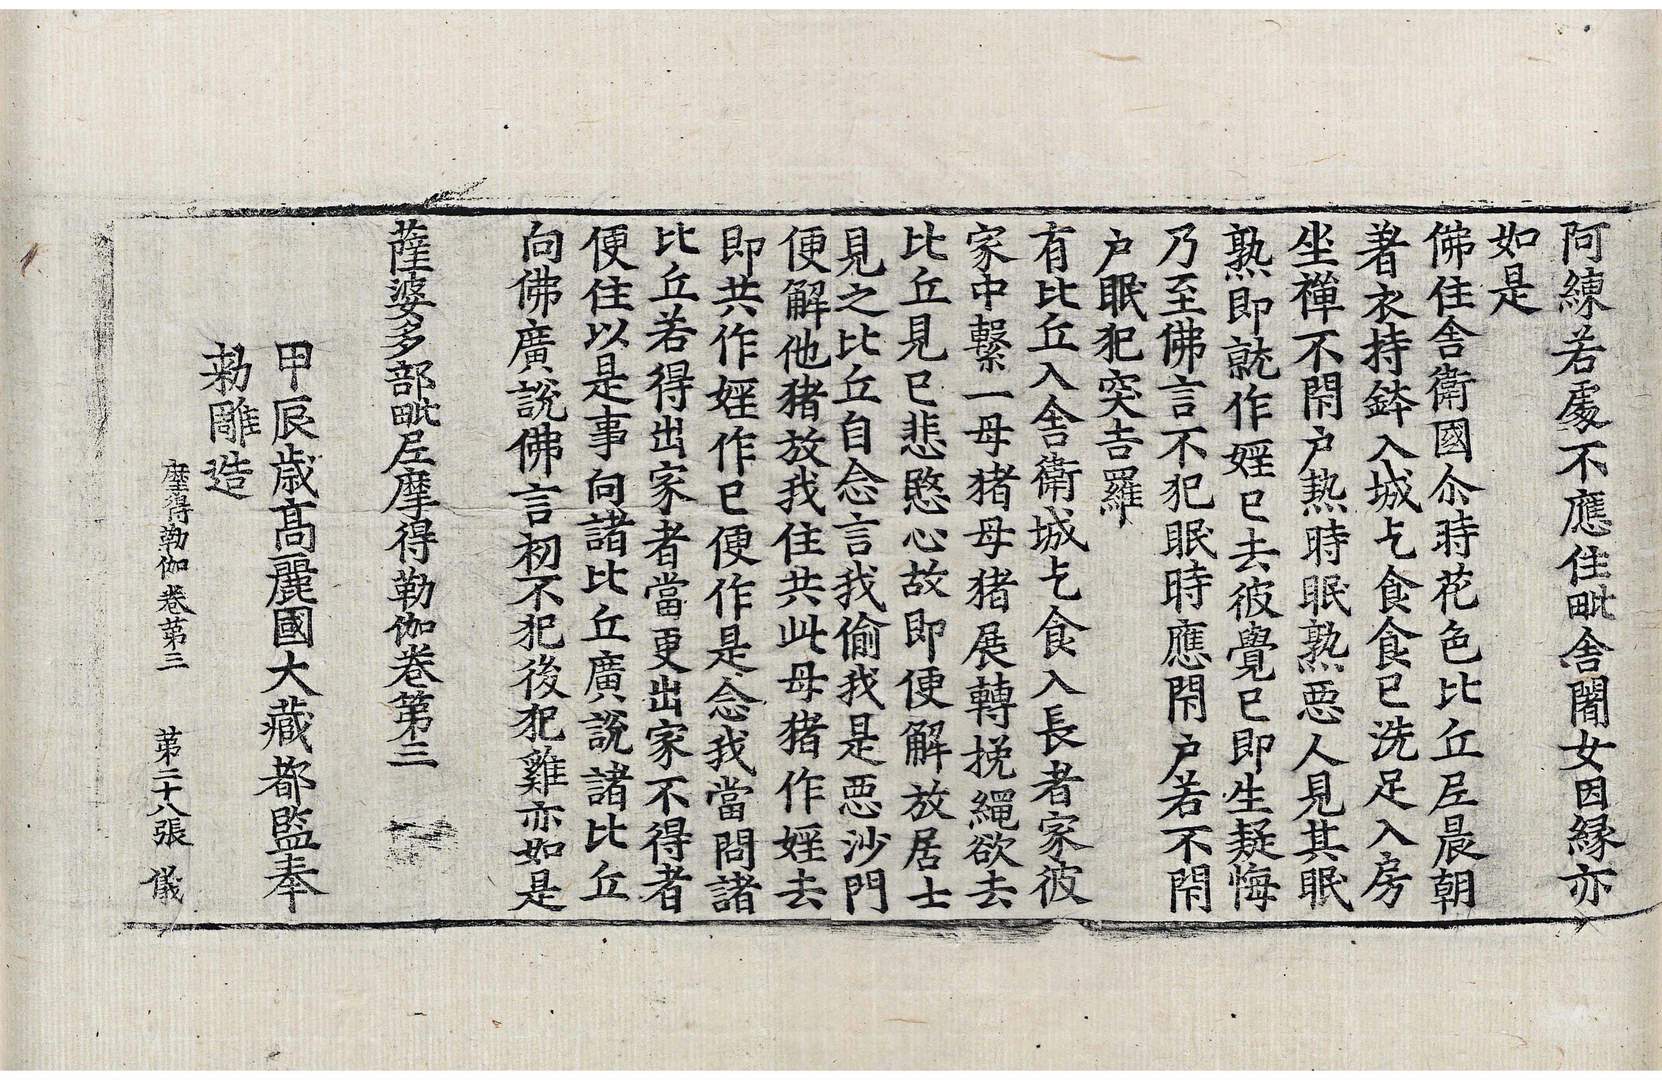 阿練若處不應住毗舍闍女因縁亦
如是
佛住舎衛國尒時花色比丘尼晨朝
著衣持鉢入城乞食食已洗足入房
坐禪不閇户熱時眠熟悪人見其眠
熟即就作婬已去彼覺已即生疑悔
乃至佛言不犯眠時應閇户若不閇
户眠犯突吉羅
有比丘入舎衛城乞食入長者家彼
家中繫一母猪母猪展轉挽繩欲去
比丘見已悲愍心故即便解放居士
見之比丘自念言我偷我是悪沙門
便解他猪放我住共此母猪作婬去
即共作婬作已便作是念我當問諸
比丘若得出家者當更出家不得者
便住以是事向諸比丘廣說諸比丘
向佛廣說佛言初不犯後犯雞亦如是
薩婆多部毗尼摩得勒伽卷第三
甲辰歳髙麗國大藏都監奉
勑雕造
摩得勒伽卷第三　第二十八張　儀